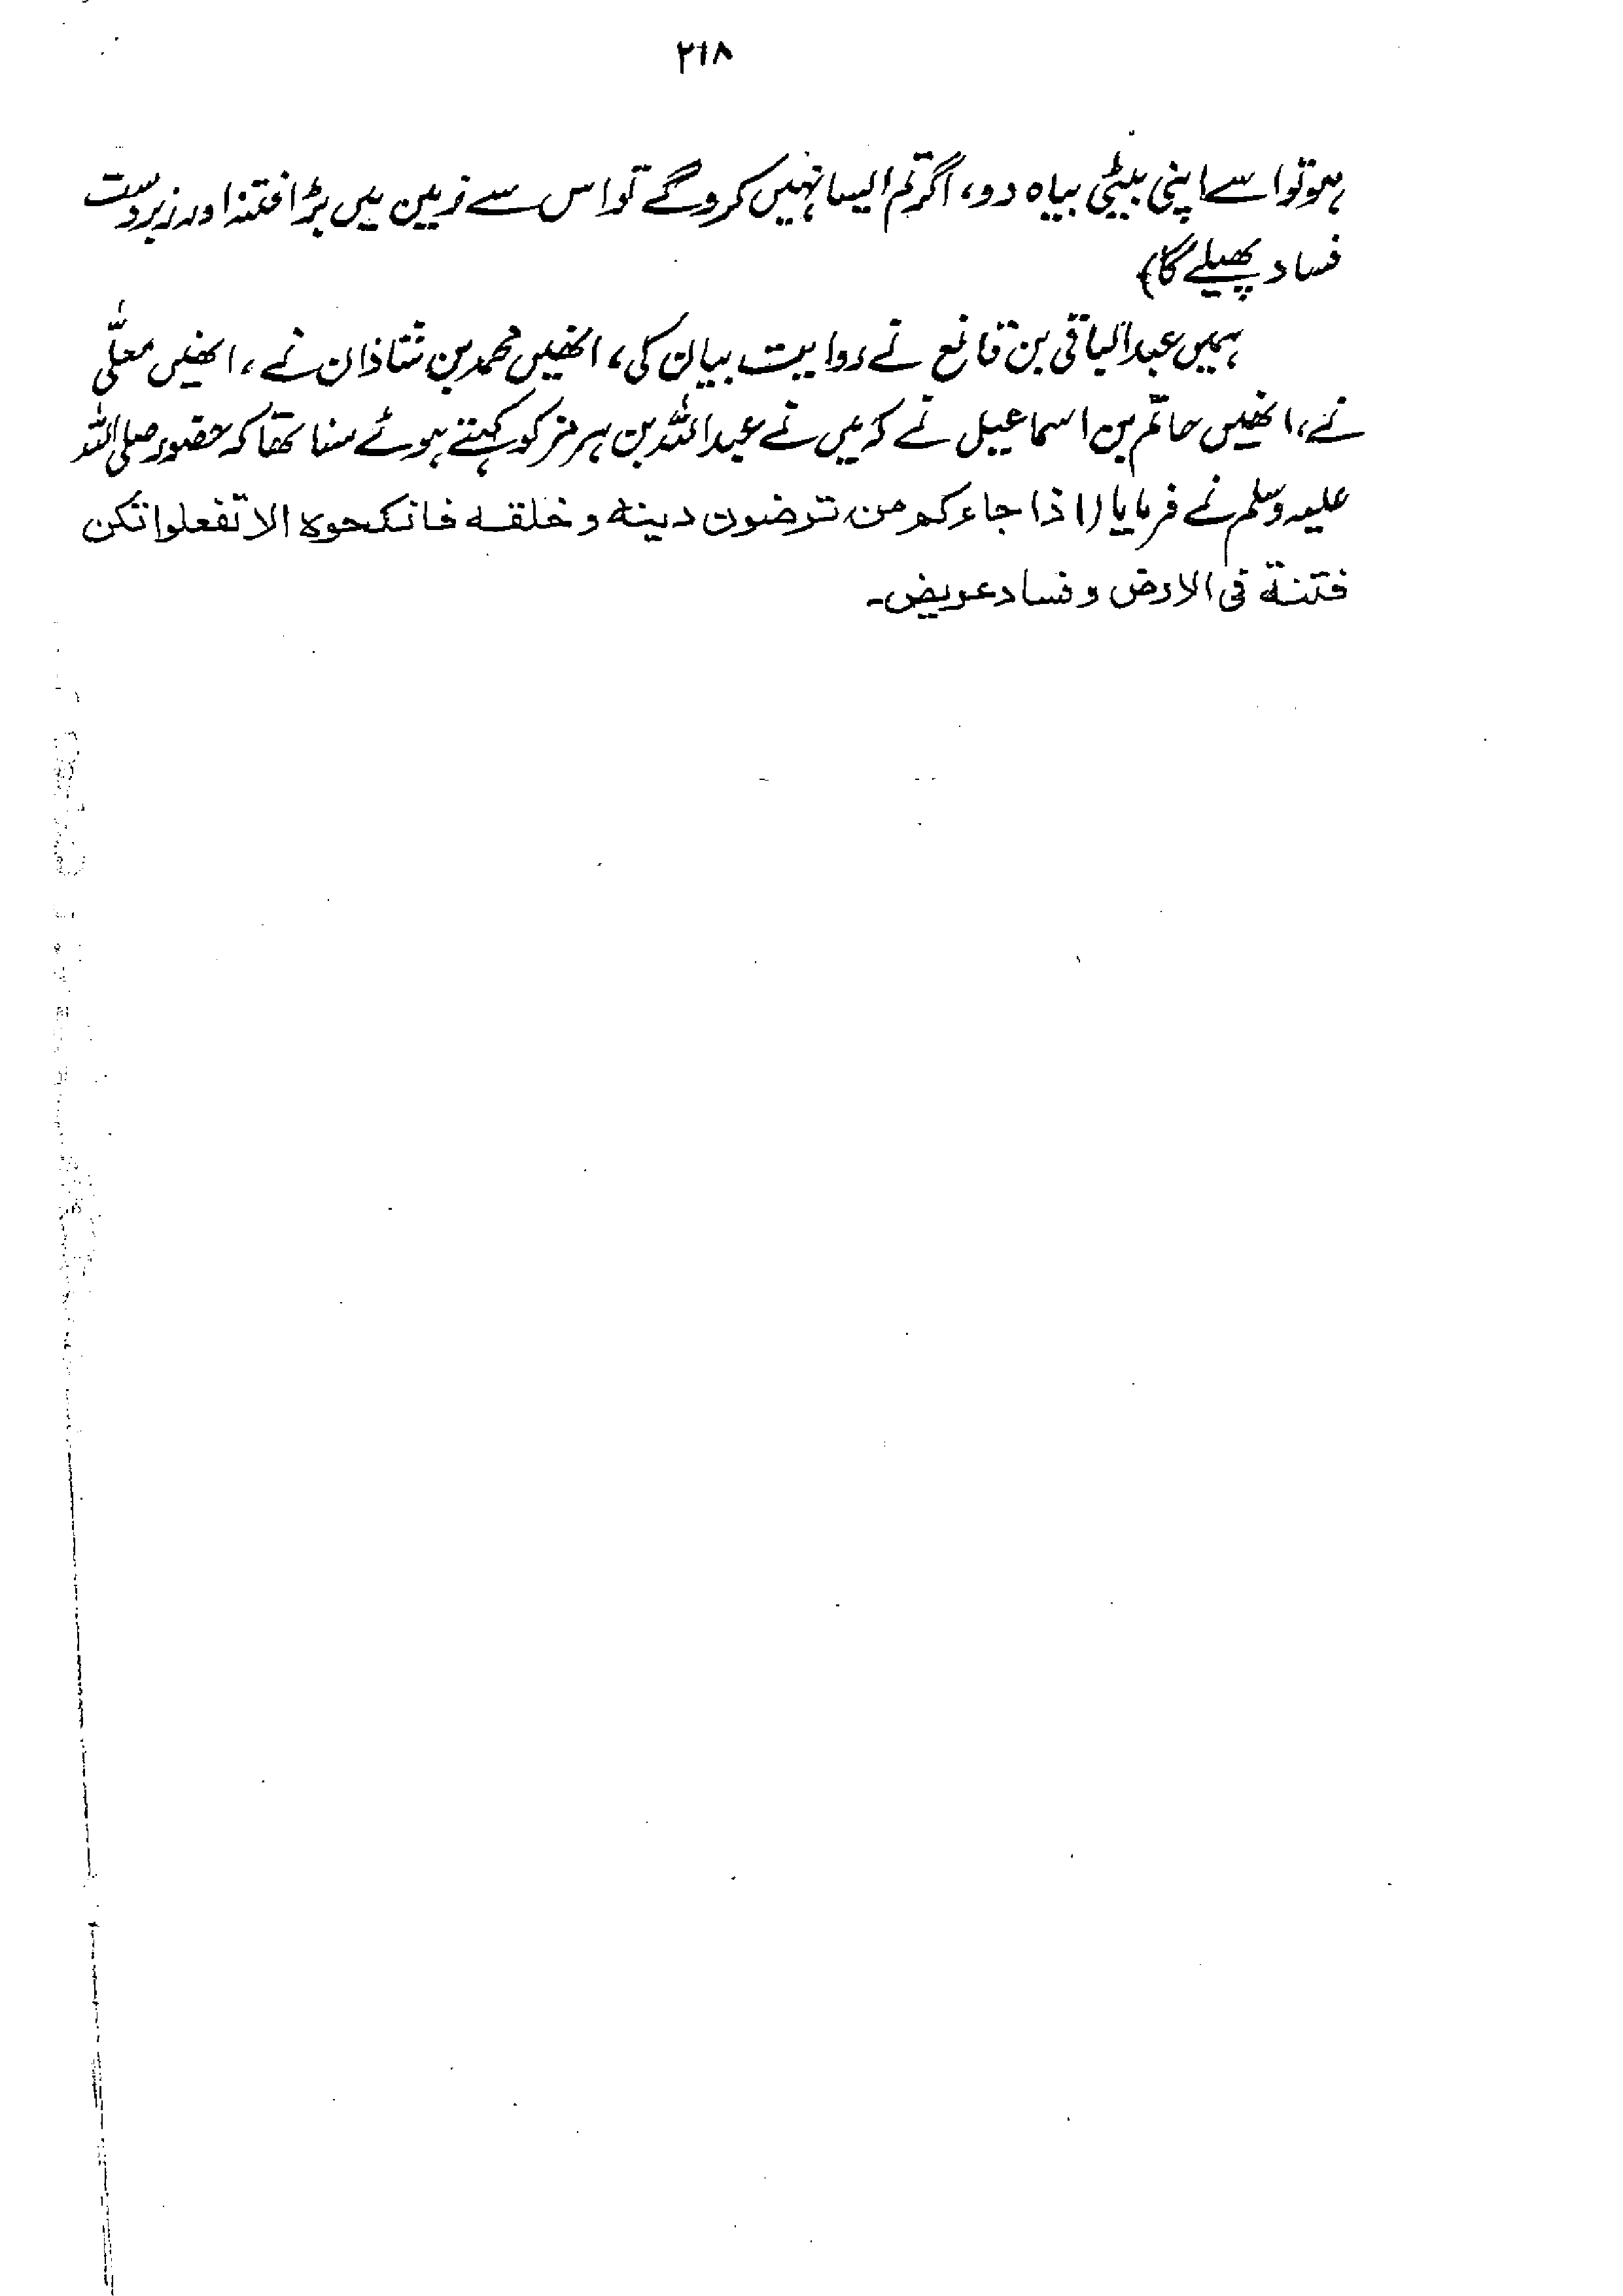 ۲۱۸
ہو تو اسے اپنی بیٹی بیاہ دو، اگر تم ایسا نہیں کرو گے تو اس سے زمین میں بڑا فتنہ اور زبردست
فساد پھیلے گا)
ہمیں عبدالباقی بن قانع نے روایت بیان کی، انھیں محمد بن شاذان نے، انھیں معلّٰی
نے، انھیں حاتم بن اسماعیل نے کہ میں نے عبداللہ بن ہرمز کو کہتے ہوئے سنا تھا کہ حضور صلی اللہ
علیہ وسلم نے فرمایا (اذا جاءکم من ترضون دینه و خلقه فانکحوه الا تفعلوا تکن
فتنة فی الارض و فساد عریض۔